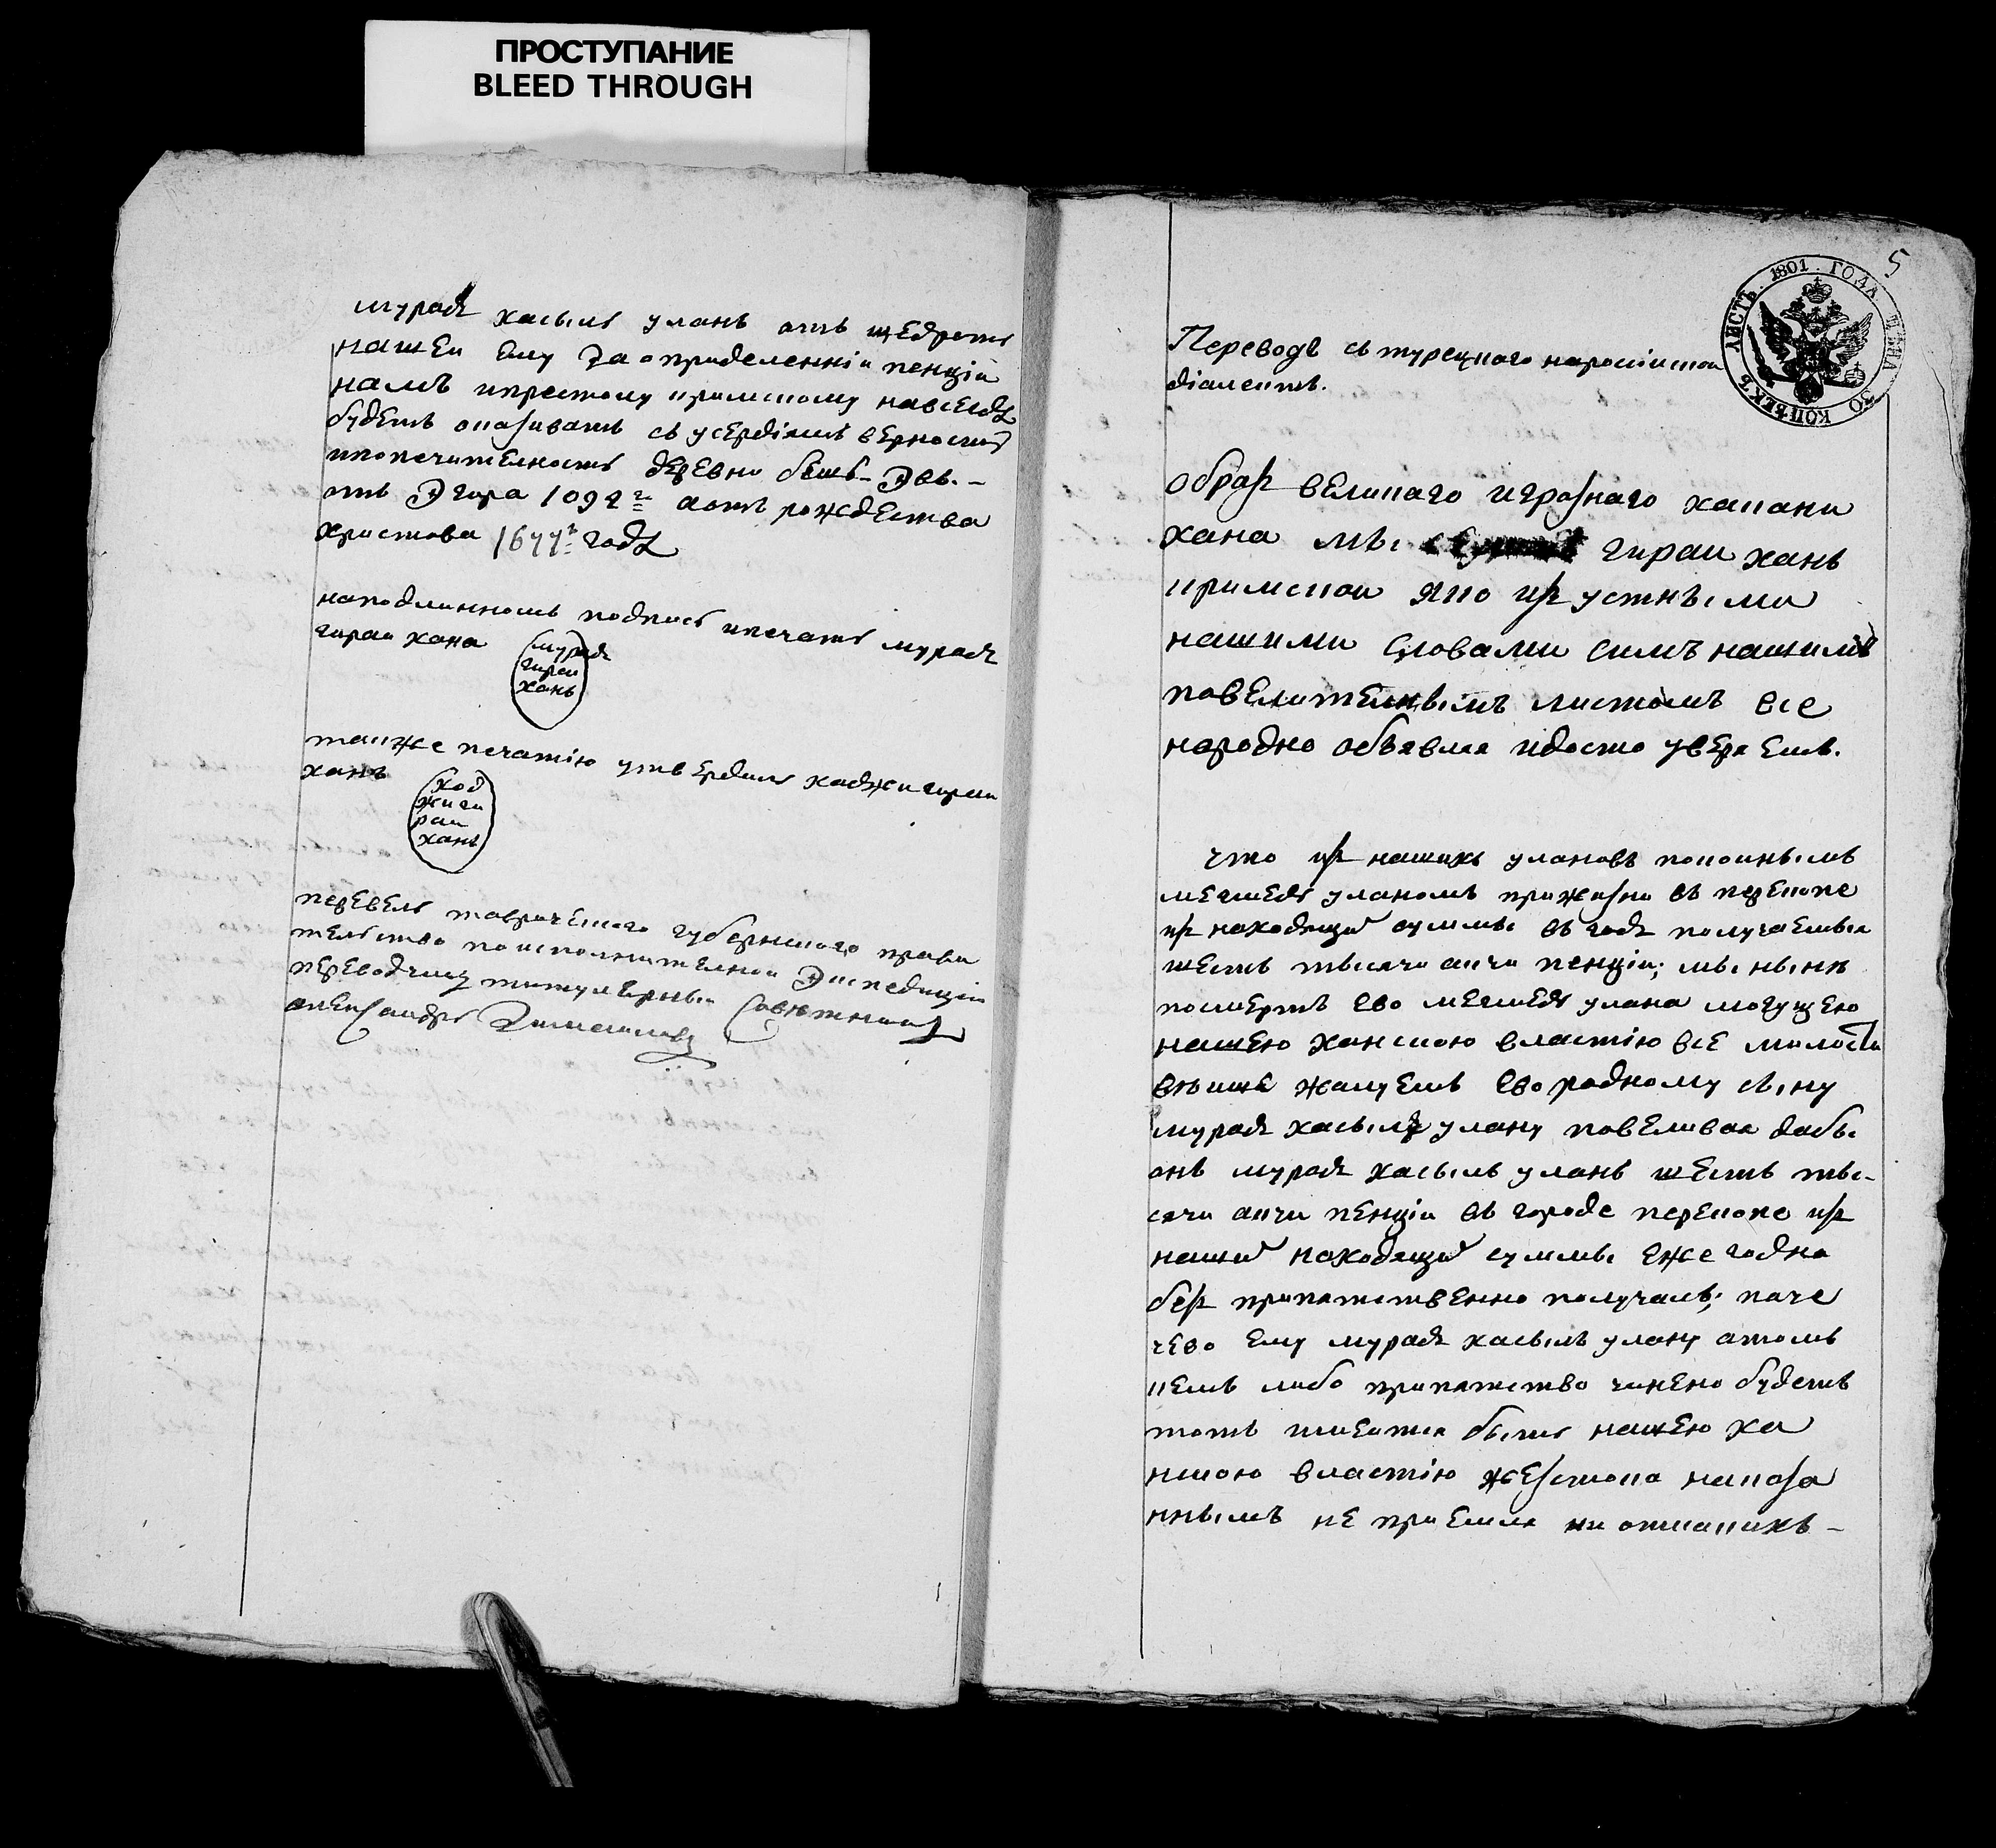 ПРОСТУПАНИЕ
BLEED THROUGH
мурадъ касымъ уланъ отъ щедротъ
нашеи ему за оприделенніи пенціи
намъ ипрестолу кримскому навсегдъ
будетъ оказивать съ усердіемъ верность
ипопечителность деревни бешъ-Эвъ.-
отъ Эгира 1092г аотъ рождества
христова 1677г годъ
наподлинномъ подпись ипечать мурадъ
гираи хана
мурадъ
гираи
ханъ
также печатію утвердилъ хаджи гираи
ханъ
хад
жи ги
раи
ханъ
перевелъ таврическаго губернскаго прави
тельства поисполнителнои Экспедиціи
переводчикъ титулярныи Советникъ
александръ
5
ЛИСТЪ 1801 ГОДА ЦѢНА 30 КОПѢЕКЪ
Переводъ съ турецкаго наросіискои
діалектъ.
образъ великаго игрознаго хакани
хана мы гираи ханъ
кримскои яко изъ устными
нашими словами симъ нашимъ
повелителнымъ листомъ все
народно объявляя идосто уверяемъ.
что изъ нашихъ улановъ покоинымъ
мегмедъ уланомъ прижизни въ перекопе
изъ находящи суммы въ годъ получаемыя
шесть тысячи акчи пенціи; мы нынѣ
посмерть ево мегмедъ улана могущею
нашею ханскою властію все милости
вѣише жалуемъ ево родному сыну
мурадъ касымъ улану повеливая дабы
онъ мурадъ касымъ уланъ шесть ты-
сячи акчи пенціи въ городе перекопе изъ
нашей находящей суммы ежегодно
безъ припятственно получалъ; паче
чево ему мурадъ касымъ улану атомъ
кемъ либо припятство чинено будетъ
тотъ имеится быть нашею ха
нскою властію жезтоко наказа
ннымъ не приемля ни откакихъ-